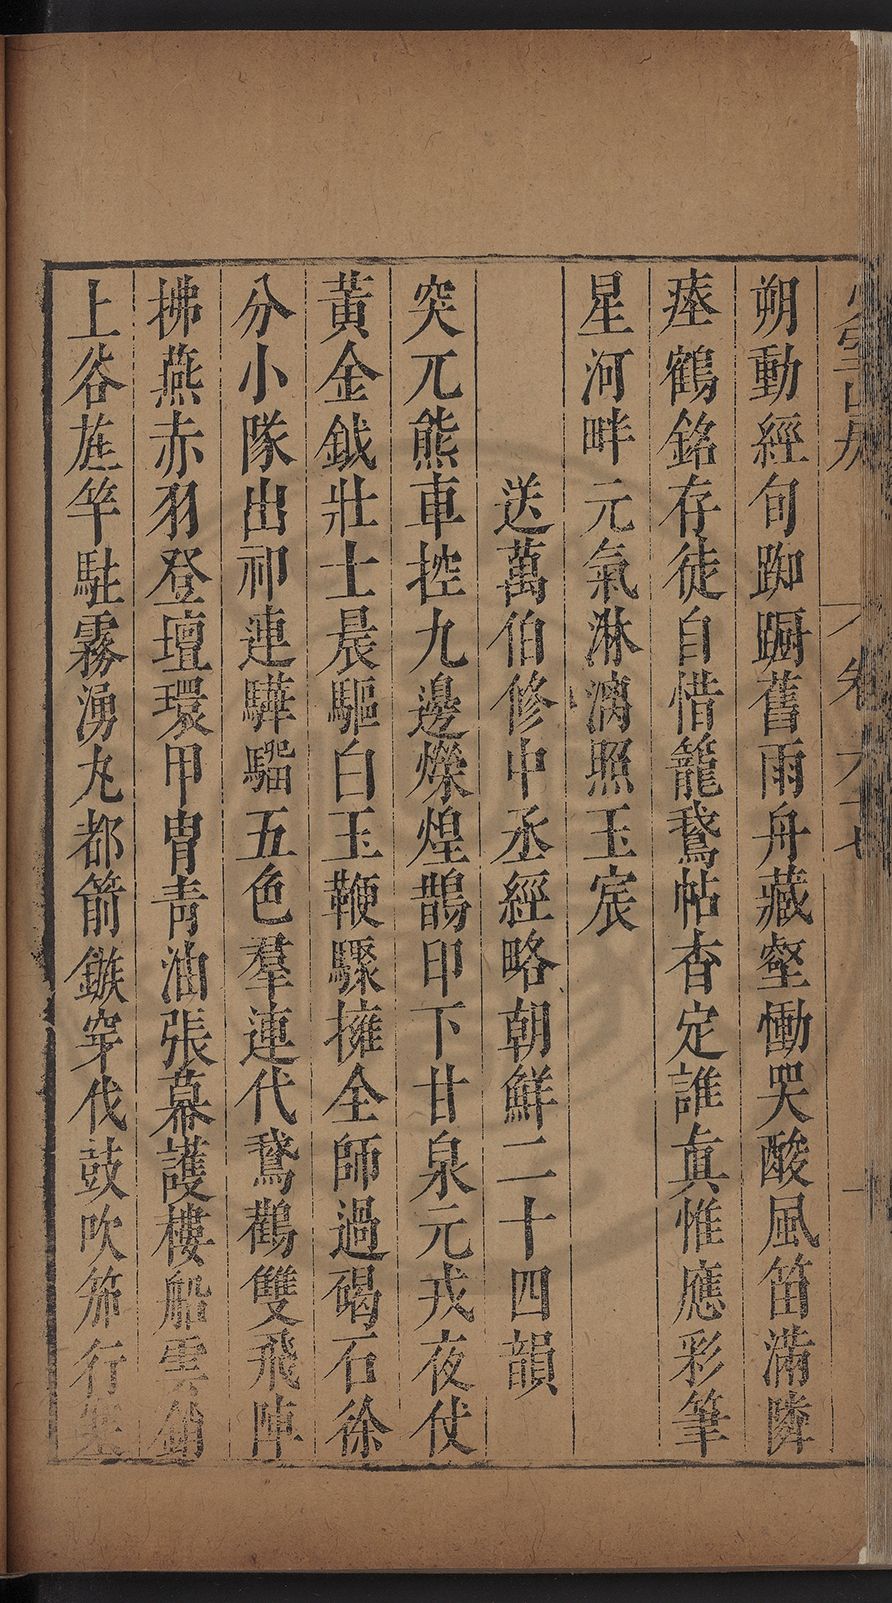 少室山房 卷六十七
朔動經旬踟蹰舊雨舟藏壑慟哭酸風笛滿隣
瘞鶴銘存徒自惜籠鵞帖杳定誰真惟應彩筆
星河畔元氣淋漓照玉宸
送萬伯修中丞經略朝鮮二十四韻
突兀熊車控九邊爍煌鵲印下甘泉元戎夜仗
黃金鉞壯士晨驅白玉鞭驟擁全師過碣石徐
分小隊出祁連驊騮五色羣連代鵞鸛雙飛陣
拂燕赤羽登壇環甲冑青油張幕護樓船雲銷
上谷旌竿駐霧湧丸都箭鏃穿伐鼓吹笳行